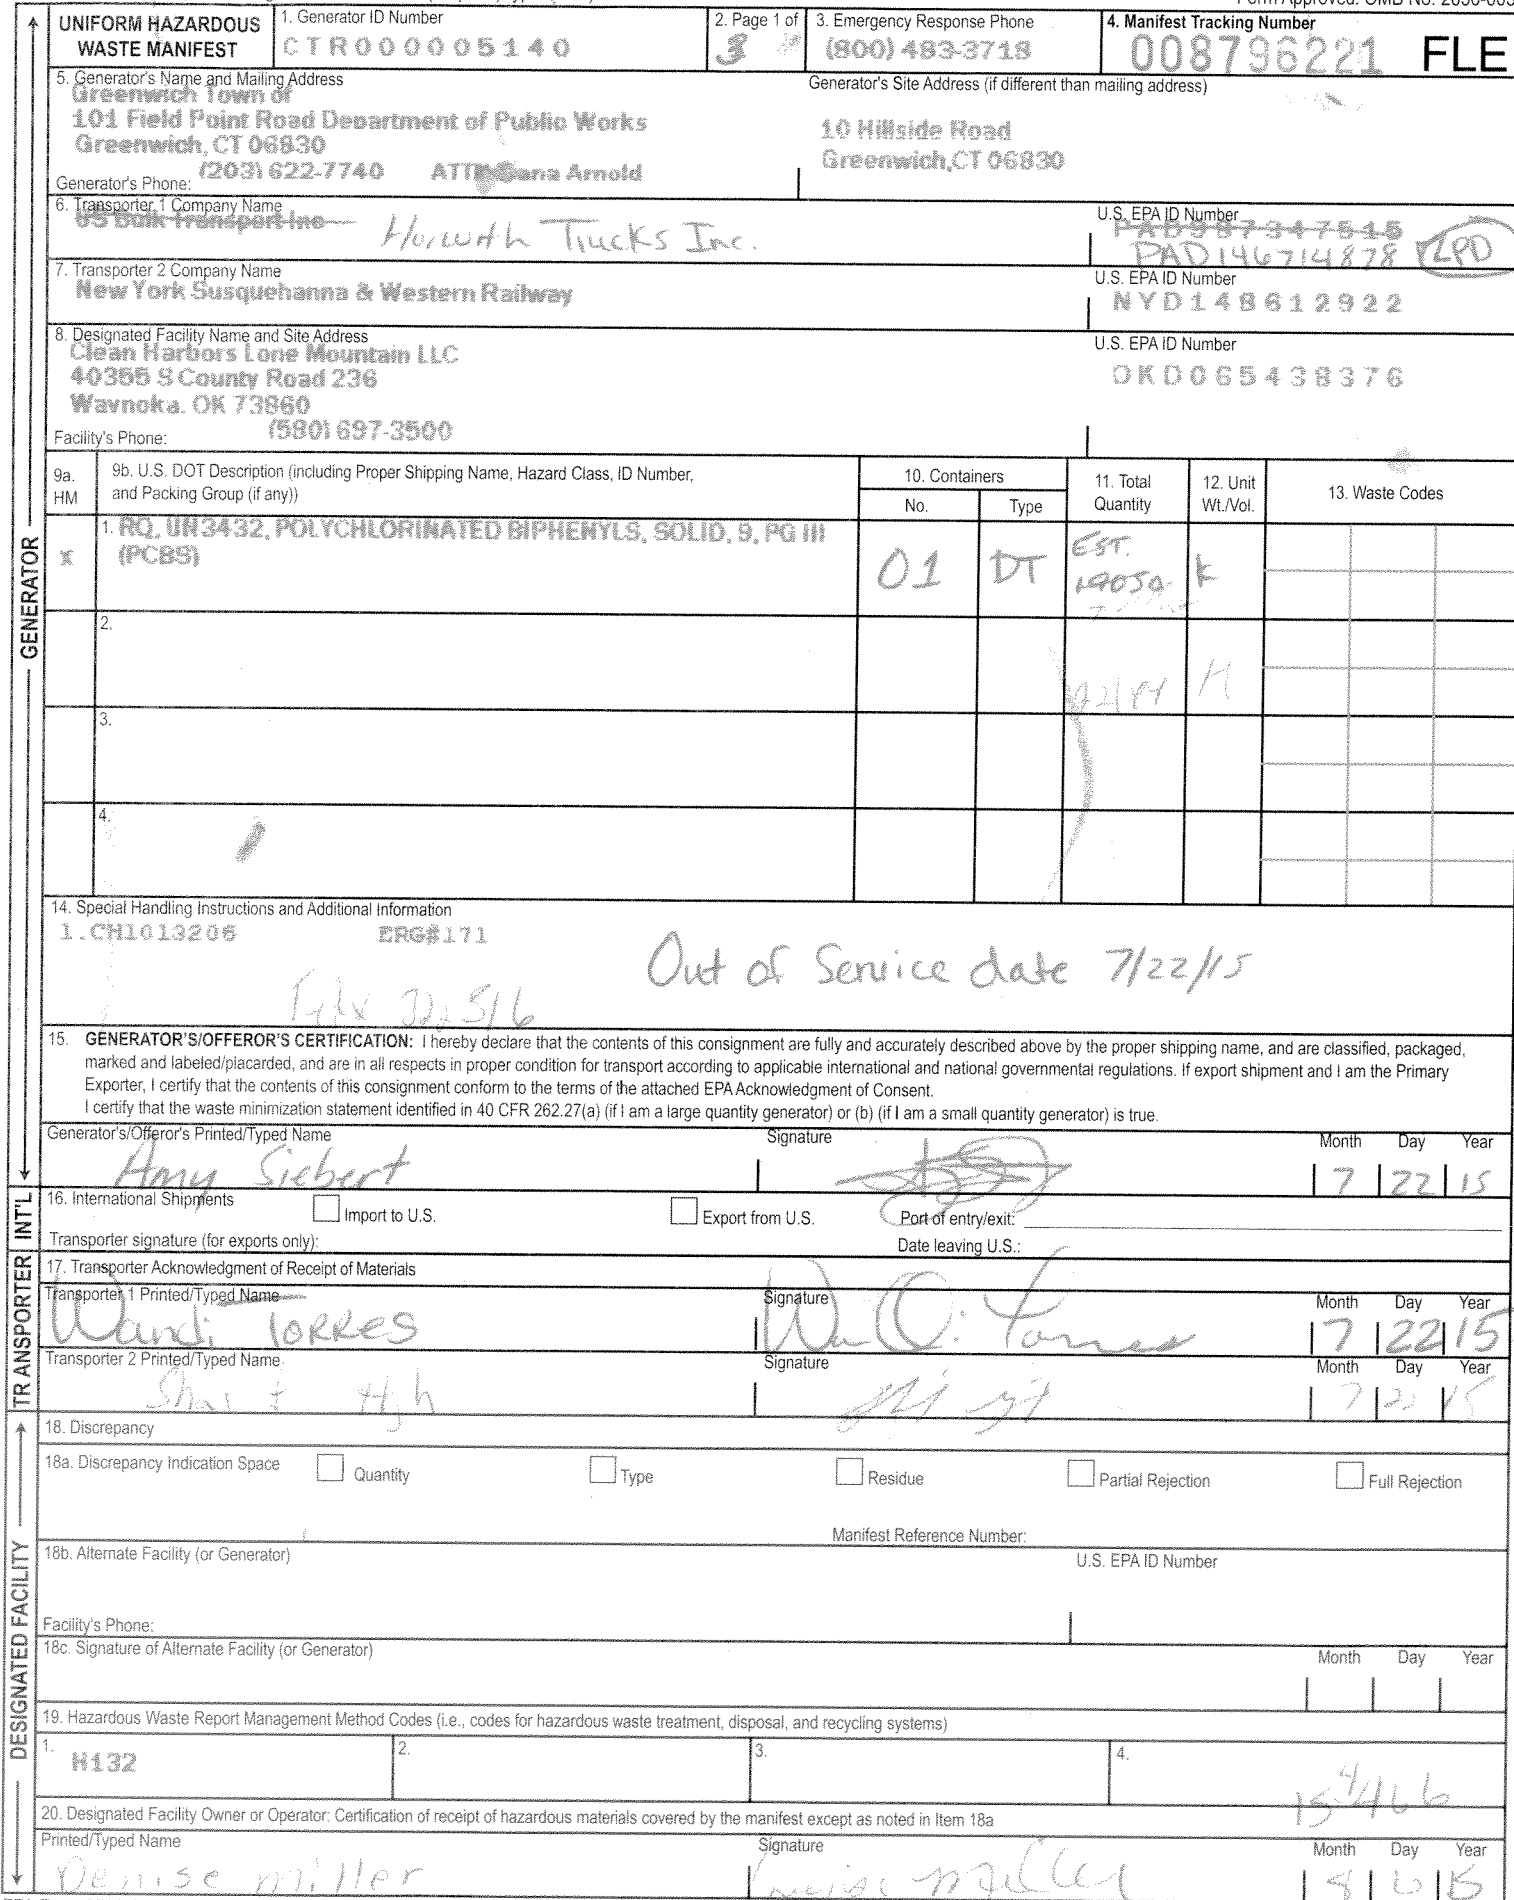 UNIFORM HAZARDOUS WASTE MANIFEST
1. Generator ID Number
CTR000005140
2. Page 1 of
3
3. Emergency Response Phone
(800) 483-3718
4. Manifest Tracking Number
008796221 FLE
5. Generator's Name and Mailing Address
Generator's Site Address (if different than mailing address)
Greenwich Town of
101 Field Point Road Department of Public Works
Greenwich, CT 06830
(203) 622-7740 ATTN: Dana Arnold
10 Hillside Road
Greenwich,CT 06830
Generator's Phone:
6. Transporter 1 Company Name
US Bulk Transport Inc
Horwith Trucks Inc.
U.S. EPA ID Number
PAD987347515
PAD146714878
7. Transporter 2 Company Name
New York Susquehanna & Western Railway
U.S. EPA ID Number
NYD148612922
8. Designated Facility Name and Site Address
Clean Harbors Lone Mountain LLC
40355 S County Road 236
Waynoka, OK 73860
(580) 697-3500
Facility's Phone:
U.S. EPA ID Number
OKD065438376
9a. HM
9b. U.S. DOT Description (including Proper Shipping Name, Hazard Class, ID Number,
and Packing Group (if any))
10. Containers
No.
Type
11. Total Quantity
12. Unit Wt./Vol.
13. Waste Codes
X
1. RQ, UN3432, POLYCHLORINATED BIPHENYLS, SOLID, 9, PG III
(PCBS)
01
DT
EST.
19050
K
2.
3.
4.
14. Special Handling Instructions and Additional Information
1.CH1013206 ERG#171
Out of Service date 7/22/15
15. GENERATOR'S/OFFEROR'S CERTIFICATION: I hereby declare that the contents of this consignment are fully and accurately described above by the proper shipping name, and are classified, packaged,
marked and labeled/placarded, and are in all respects in proper condition for transport according to applicable international and national governmental regulations. If export shipment and I am the Primary
Exporter, I certify that the contents of this consignment conform to the terms of the attached EPA Acknowledgment of Consent.
I certify that the waste minimization statement identified in 40 CFR 262.27(a) (if I am a large quantity generator) or (b) (if I am a small quantity generator) is true.
Generator's/Offeror's Printed/Typed Name
Signature
Month Day Year
Amy Siebert
7 22 15
16. International Shipments
Import to U.S.
Export from U.S.
Port of entry/exit:
Transporter signature (for exports only):
Date leaving U.S.:
17. Transporter Acknowledgment of Receipt of Materials
Transporter 1 Printed/Typed Name
Signature
Month Day Year
Wandi TORRES
7 22 15
Transporter 2 Printed/Typed Name
Signature
Month Day Year
18. Discrepancy
18a. Discrepancy Indication Space
Quantity
Type
Residue
Partial Rejection
Full Rejection
Manifest Reference Number:
18b. Alternate Facility (or Generator)
U.S. EPA ID Number
Facility's Phone:
18c. Signature of Alternate Facility (or Generator)
Month Day Year
19. Hazardous Waste Report Management Method Codes (i.e., codes for hazardous waste treatment, disposal, and recycling systems)
1. H132
2.
3.
4.
20. Designated Facility Owner or Operator: Certification of receipt of hazardous materials covered by the manifest except as noted in Item 18a
Printed/Typed Name
Signature
Month Day Year
Denise Miller
Denise Miller
8 6 15
GENERATOR
INT'L
TRANSPORTER
DESIGNATED FACILITY